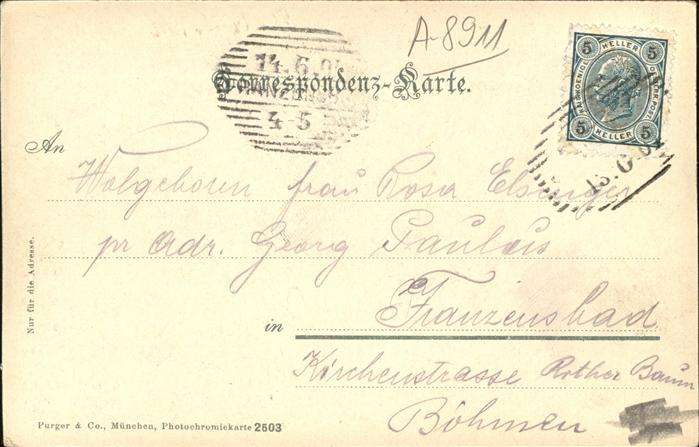 A-8911
Correspondenz-Karte.
5 HELLER 5
5 HELLER 5
14.6.01
4-5
13.6.01
An
Wolgeboren frau Rosa Elsinger
pr Adr. Georg Paulus
Franzensbad
in
Kirchenstrasse Rother Baum
Böhmen
Nur für die Adresse.
Purger & Co., München, Photochromiekarte 2503